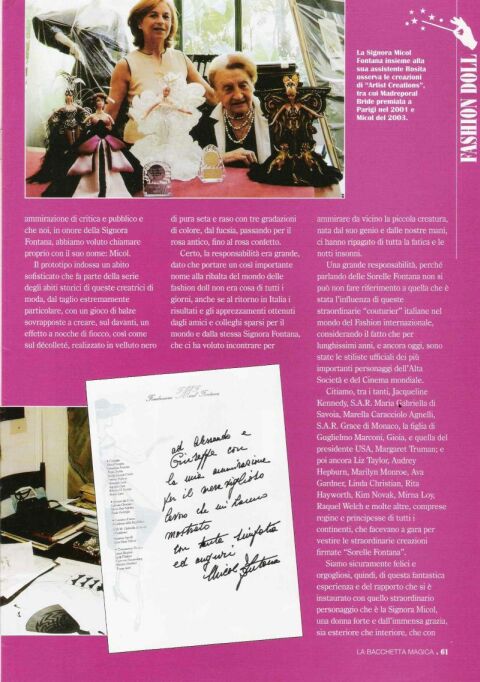 La Signora Micol
Fontana insieme alla
sua assistente Rosita
osserva le creazioni
di "Artist Creations",
tra cui Madreporal
Bride premiata a
Parigi nel 2001 e
Micol del 2003.
FASHION DOLL
ammirazione di critica e pubblico e
che noi, in onore della Signora
Fontana, abbiamo voluto chiamare
proprio con il suo nome: Micol.
Il prototipo indossa un abito
sofisticato che fa parte della serie
degli abiti storici di queste creatrici di
moda, dal taglio estremamente
particolare, con un gioco di balze
sovrapposte a creare, sul davanti, un
effetto a nocche di fiocco, così come
sul décolleté, realizzato in velluto nero
di pura seta e raso con tre gradazioni
di colore, dal fucsia, passando per il
rosa antico, fino al rosa confetto.
Certo, la responsabilità era grande,
dato che portare un così importante
nome alla ribalta del mondo delle
fashion doll non era cosa di tutti i
giorni, anche se al ritorno in Italia i
risultati e gli apprezzamenti ottenuti
dagli amici e colleghi sparsi per il
mondo e dalla stessa Signora Fontana,
che ci ha voluto incontrare per
ammirare da vicino la piccola creatura,
nata dal suo genio e dalle nostre mani,
ci hanno ripagato di tutta la fatica e le
notti insonni.
Una grande responsabilità, perché
parlando delle Sorelle Fontana non si
può non fare riferimento a quella che è
stata l'influenza di queste
straordinarie "couturier" italiane nel
mondo del Fashion internazionale,
considerando il fatto che per
lunghissimi anni, e ancora oggi, sono
state le stiliste ufficiali dei più
importanti personaggi dell'Alta
Società e del Cinema mondiale.
Citiamo, tra i tanti, Jacqueline
Kennedy, S.A.R. Maria Gabriella di
Savoia, Marella Caracciolo Agnelli,
S.A.R. Grace di Monaco, la figlia di
Guglielmo Marconi, Gioia, e quella del
presidente USA, Margaret Truman; e
poi ancora Liz Taylor, Audrey
Hepburn, Marilyn Monroe, Ava
Gardner, Linda Christian, Rita
Hayworth, Kim Novak, Mirna Loy,
Raquel Welch e molte altre, comprese
regine e principesse di tutti i
continenti, che facevano a gara per
vestire le straordinarie creazioni
firmate "Sorelle Fontana".
Siamo sicuramente felici e
orgogliosi, quindi, di questa fantastica
esperienza e del rapporto che si è
instaurato con quello straordinario
personaggio che è la Signora Micol,
una donna forte e dall'immensa grazia,
sia esteriore che interiore, che con
Fondazione Micol Fontana
ad Alessandro e
Giuseppe con
la mia ammirazione
per il meraviglioso
lavoro che mi hanno
mostrato
con tanta simpatia
ed auguri
Micol Fontana
LA BACCHETTA MAGICA . 61